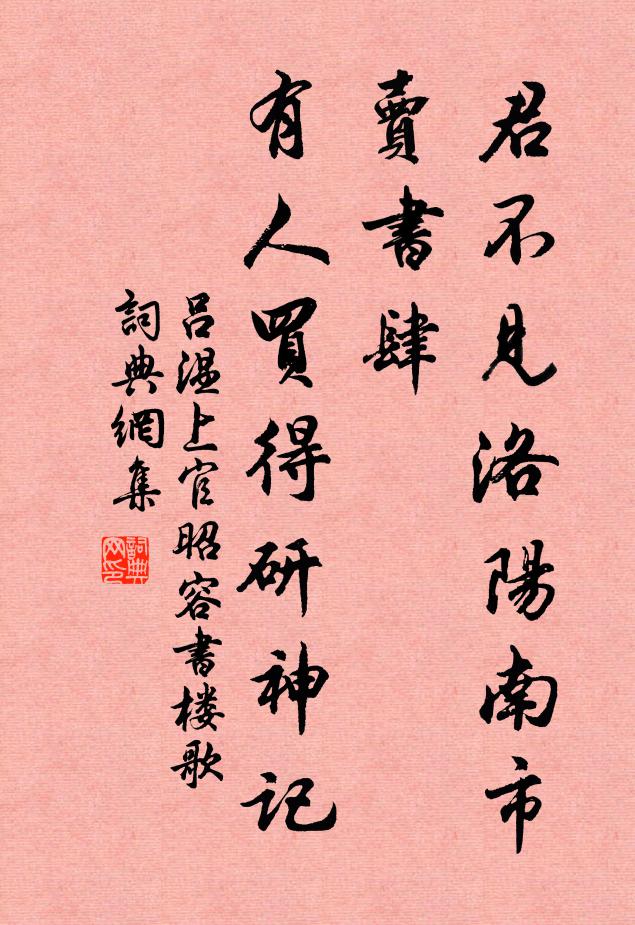 君不見洛陽南市
賣書肆
有人買得研神記
吕温上官昭容书楼歌
詞典網集
詞典
网印